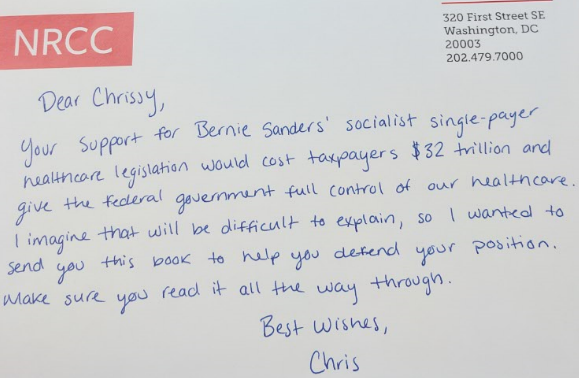 NRCC
320 First Street SE
Washington, DC
20003
202.479.7000
Dear Chrissy,
Your support for Bernie Sanders' socialist single-payer
healthcare legislation would cost taxpayers $32 trillion and
give the federal government full control of our healthcare.
I imagine that will be difficult to explain, so I wanted to
send you this book to help you defend your position.
Make sure you read it all the way through.
Best Wishes,
Chris